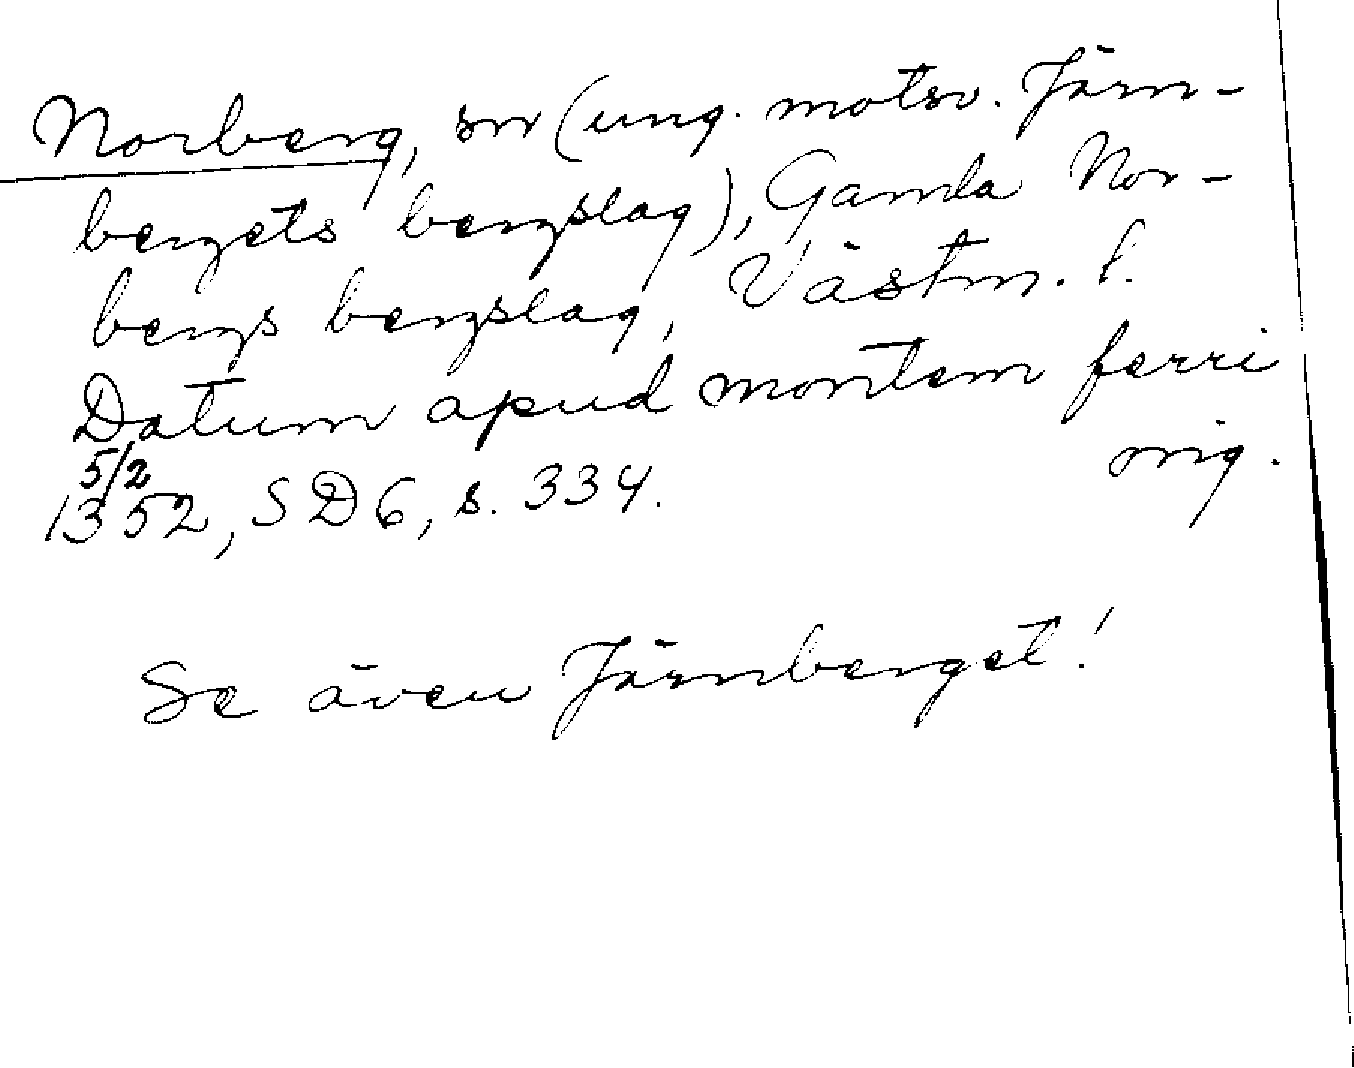 Norberg, sn (ung. motsv. Järn-
bergets bergslag), Gamla Nor-
bergs bergslag, Västm. l.
Datum apud montem ferri
5/2 orig.
1352, SD 6, s. 334.
Se även Järnberget!